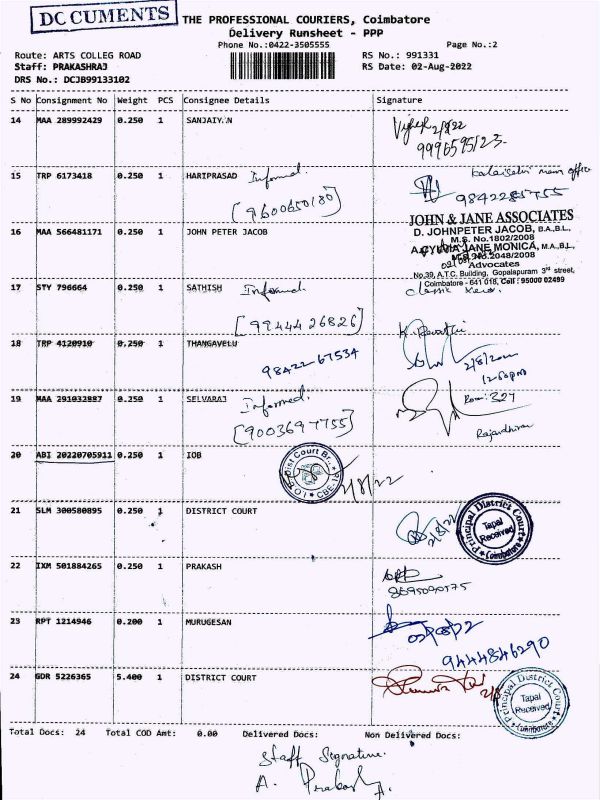 DC CUMENTS
THE PROFESSIONAL COURIERS, Coimbatore
Delivery Runsheet - PPP
Phone No.:0422-3505555 Page No.:2
Route: ARTS COLLEG ROAD RS No.: 991331
Staff: PRAKASHRAJ RS Date: 02-Aug-2022
DRS No.: DCJB99133102
S No Consignment No Weight PCS Consignee Details Signature
14 MAA 289992429 0.250 1 SANJAIY.N
2/8/22
15 TRP 6173418 0.250 1 HARIPRASAD Informed. main office
[9600650180] 9842285755
JOHN & JANE ASSOCIATES
16 MAA 566481171 0.250 1 JOHN PETER JACOB D. JOHNPETER JACOB, B.A.,B.L.,
M.S. No.1802/2008
JANE MONICA, M.A.,B.L.,
M.S. No.2048/2008
Advocates
No.39, A.T.C. Building, Gopalapuram 3rd street,
Coimbatore - 641 018, Cell : 95000 02499
17 STY 796664 0.250 1 SATHISH Informed. classic Xerox.
[99444 26826]
18 TRP 4120910 0.250 1 THANGAVELU K. Revathi
98422-67534 2/8/2022
12-50pm
19 MAA 291032887 0.250 1 SELVARAJ Informed. Room: 327
[9003697755] Rajandhiran
20 ABI 20220705911 0.250 1 IOB
2/8/22
21 SLM 300580895 0.250 1 DISTRICT COURT 2/8/22
Principal District Court
Tapal
Received
Coimbatore
22 IXM 501884265 0.250 1 PRAKASH
8695090575
23 RPT 1214946 0.200 1 MURUGESAN 02/08/22
9444846290
24 GDR 5226365 5.400 1 DISTRICT COURT
Principal District Court
Tapal
Received
Coimbatore
Total Docs: 24 Total COD Amt: 0.00 Delivered Docs: Non Delivered Docs:
Staff Signature.
A. Prakash